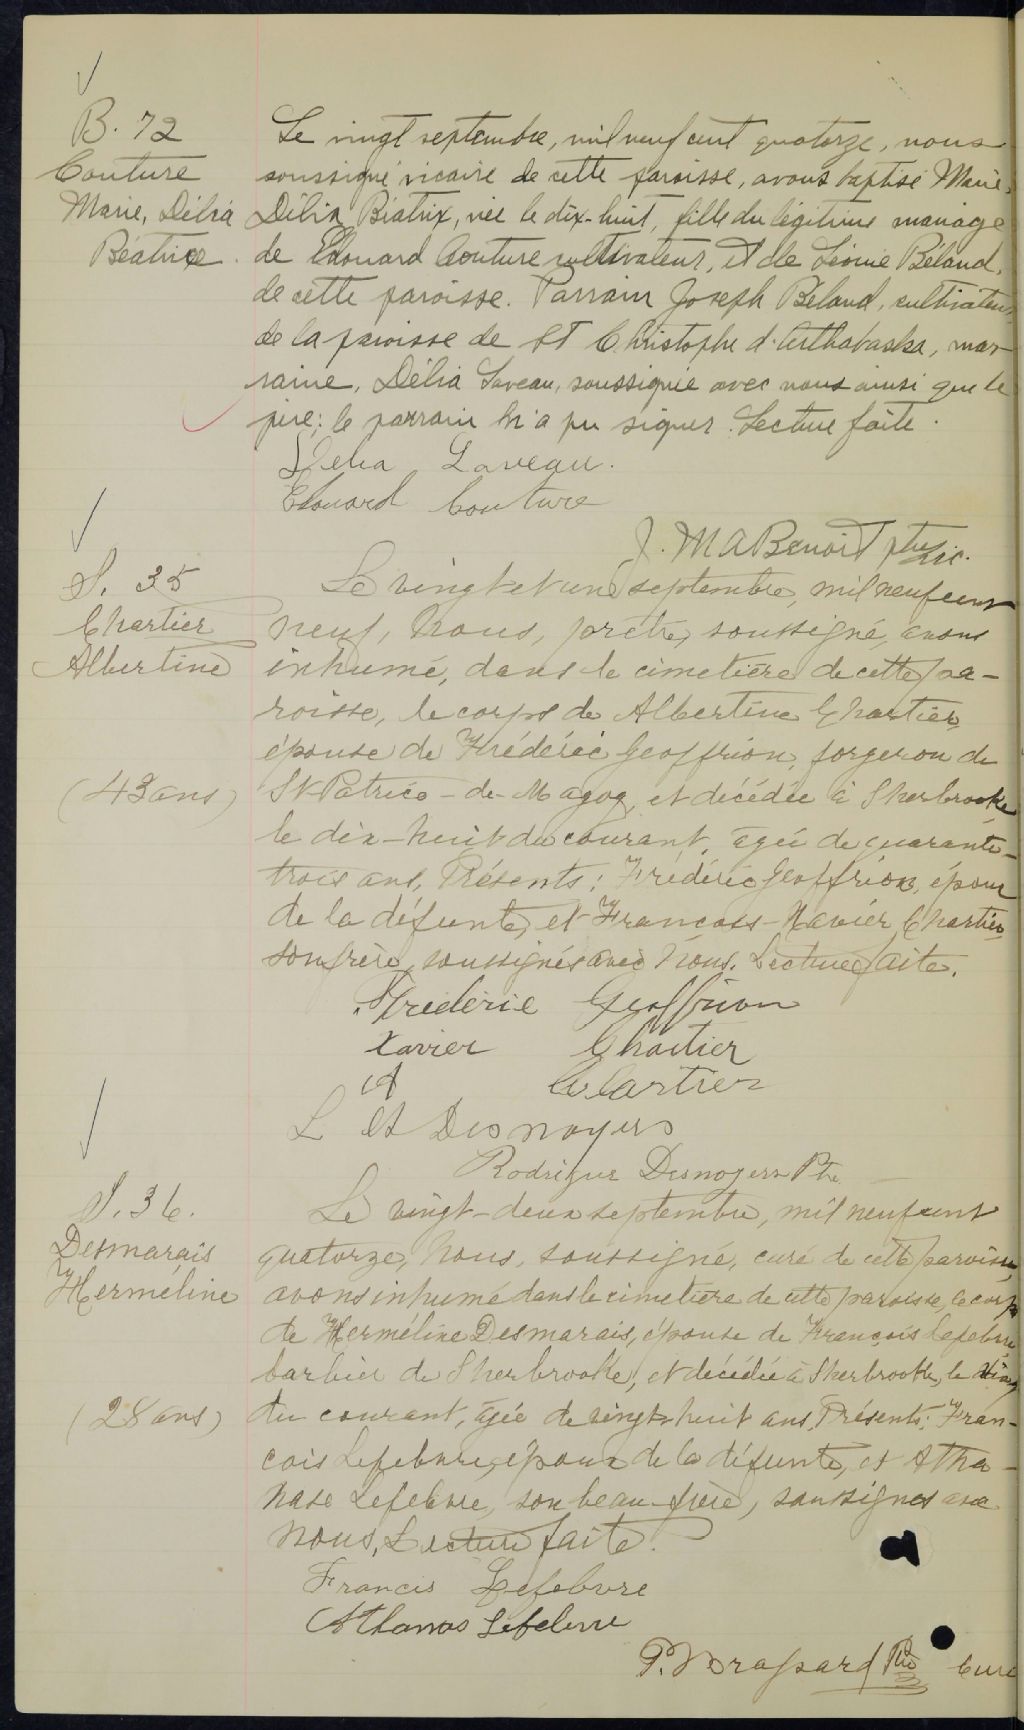 B. 72
Couture
Marie, Délia
Béatrice.
Le vingt septembre, mil neuf cent quatorze, nous
soussigné vicaire de cette paroisse, avons baptisé Marie,
Délia Béatrix, née le dix-huit, fille du légitime mariage
de Edouard Couture cultivateur, et de Léonie Béland,
de cette paroisse. Parrain Joseph Béland, cultivateur,
de la paroisse de St Christophe d'Arthabaska, mar-
raine, Délia Laveau, soussignée avec nous ainsi que le
père; le parrain n'a pu signer. Lecture faite.
Delia Laveau.
Edouard Couture
J. M A Benoit ptre vic.
S. 35
Chartier
Albertine
(43 ans)
Le vingt et un septembre, mil neuf cent
neuf, Nous, prêtre, soussigné, avons
inhumé, dans le cimetière de cette pa-
roisse, le corps de Albertine Chartier,
épouse de Frédéric Geoffrion, forgeron de
St-Patrice-de-Magog, et décédée à Sherbrooke
le dix-huit du courant, âgée de quarante-
trois ans. Présents: Frédéric Geoffrion, époux
de la défunte, et François-Xavier Chartier,
son frère, soussignés avec Nous. Lecture faite.
Frederic Geoffrion
Xavier Chartier
A Chartier
L A Desnoyers
Rodrigue Desnoyers Ptre
S. 36.
Desmarais
Herméline
(28 ans)
Le vingt-deux septembre, mil neuf cent
quatorze, Nous, soussigné, curé de cette paroisse,
avons inhumé dans le cimetière de cette paroisse, le corps
de Herméline Desmarais, épouse de François Lefebvre,
barbier de Sherbrooke, et décédée à Sherbrooke, le
du courant, âgée de vingt-huit ans. Présents: Fran-
çois Lefebvre, époux de la défunte, et Atha-
nase Lefebvre, son beau-frère, soussignés avec
nous, Lecture faite.
Francis Lefebvre
Athanas Lefebvre
P. Brassard Ptre Curé